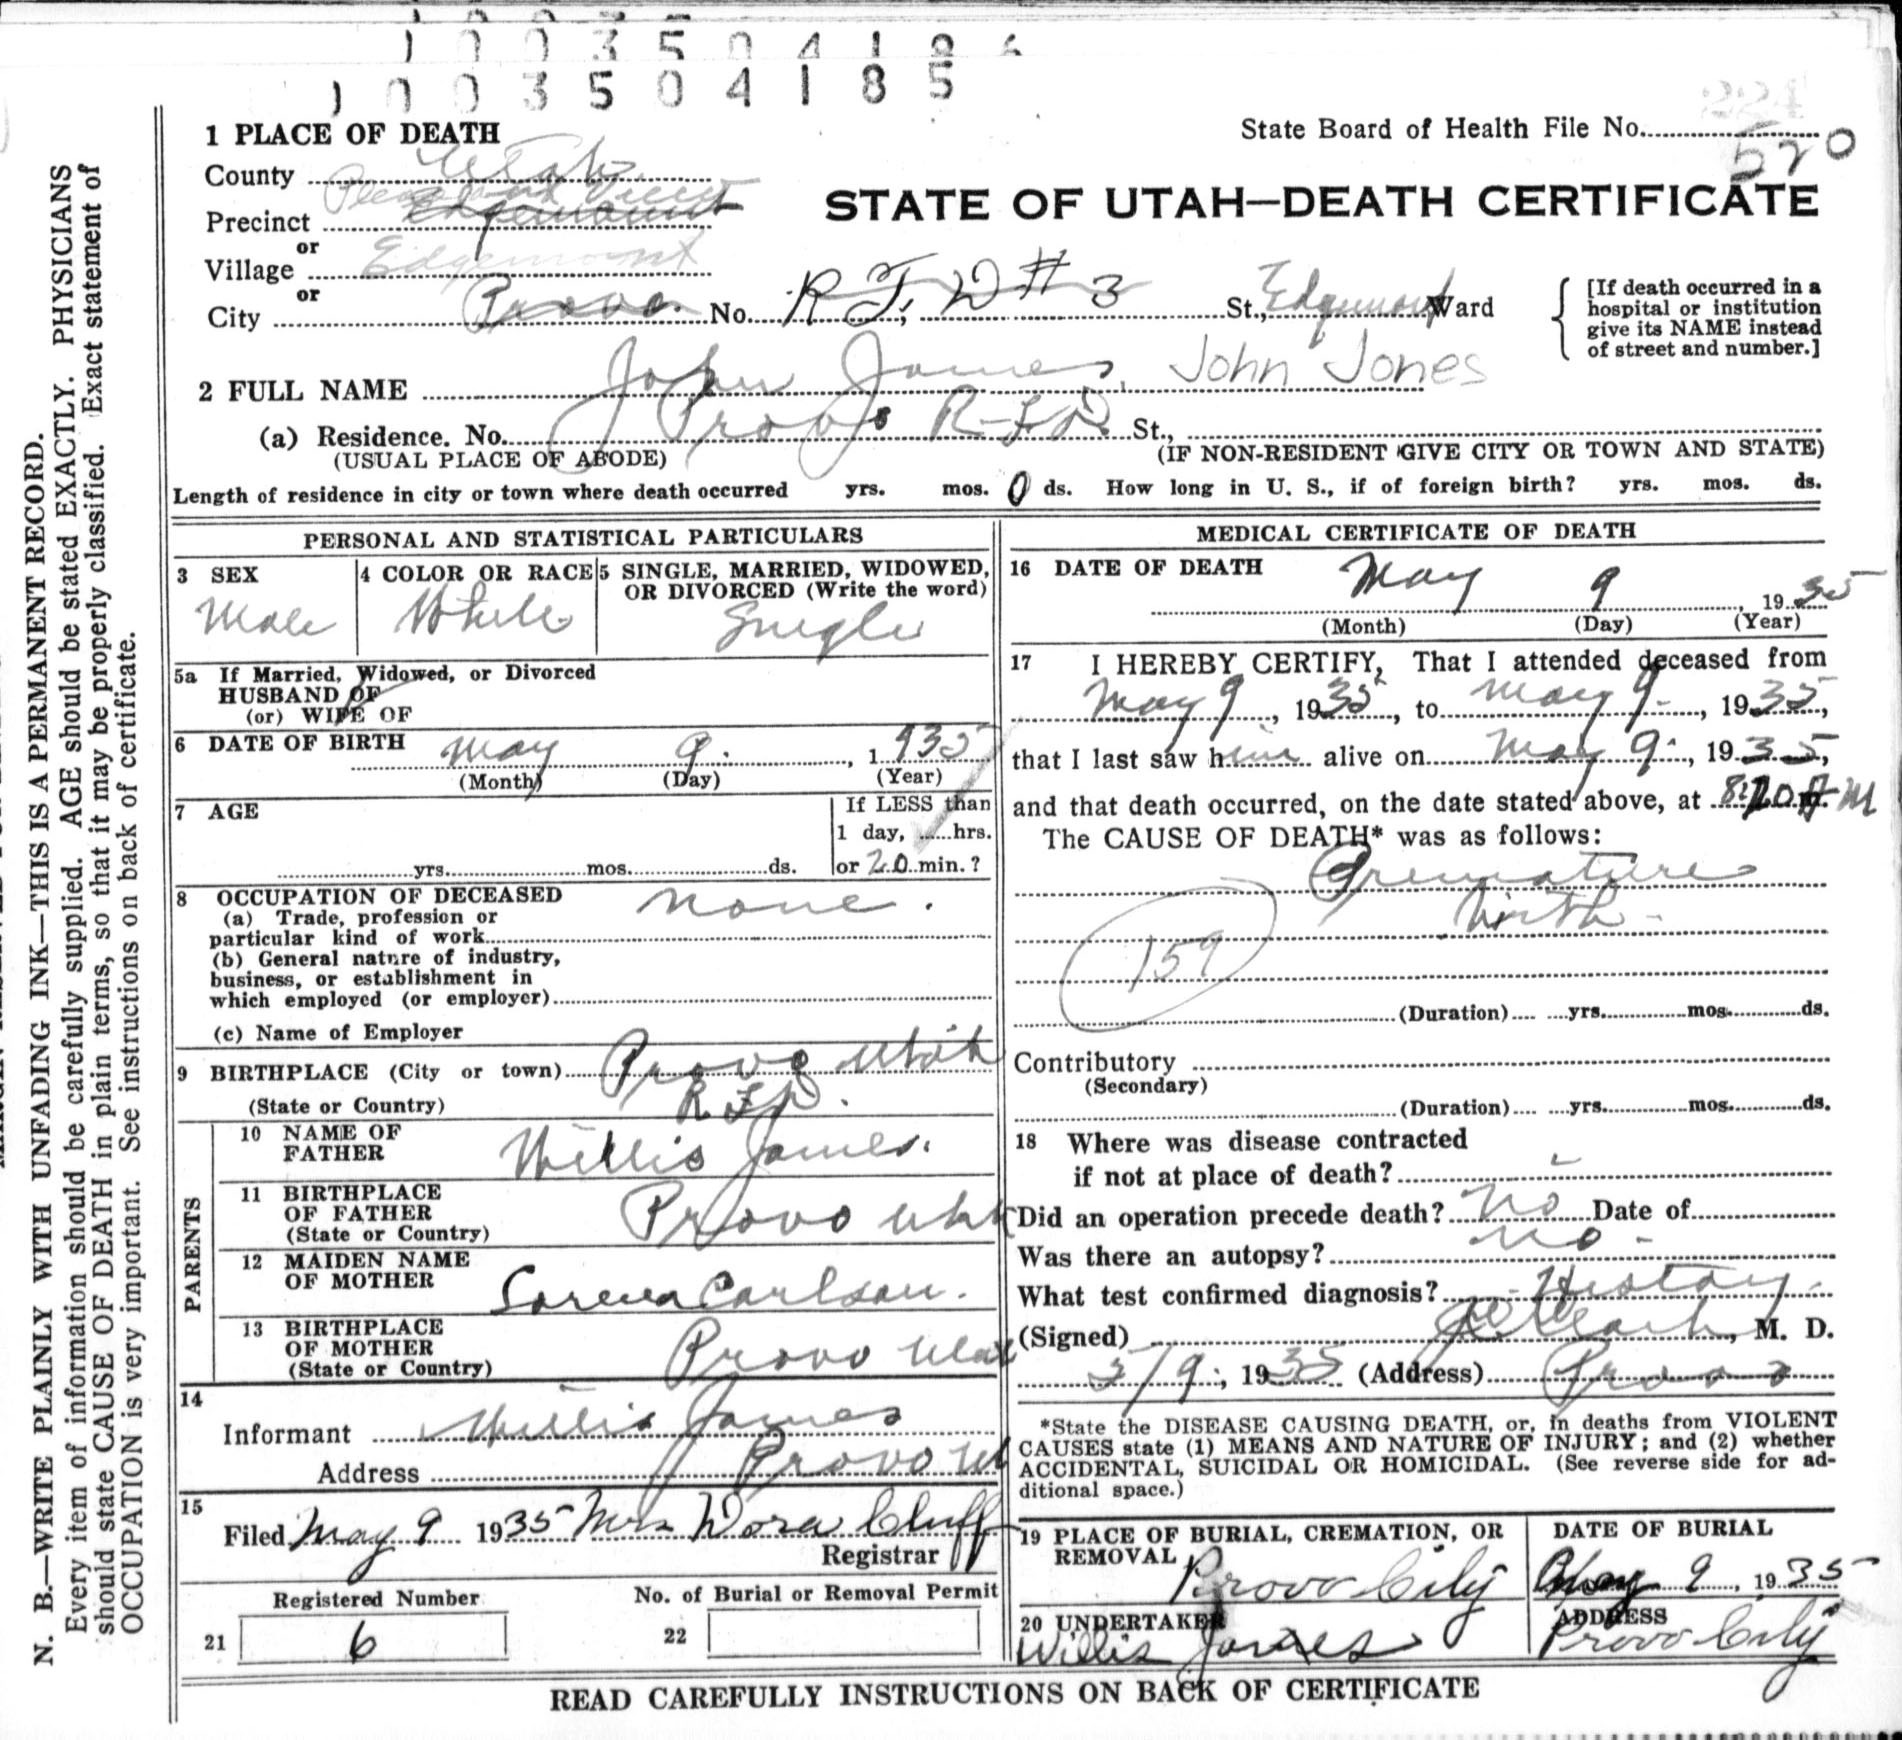 1003504186
1003504185
224
1 PLACE OF DEATH
State Board of Health File No. 570
County Utah
Pleasant View
Precinct Edgemount
STATE OF UTAH—DEATH CERTIFICATE
or
Village Edgemont
or
City Provo. No. R F, D # 3 St., Edgemont Ward
[If death occurred in a hospital or institution give its NAME instead of street and number.]
2 FULL NAME John James, John Jones
(a) Residence. No. Provo R-F.D. St.,
(USUAL PLACE OF ABODE) (IF NON-RESIDENT GIVE CITY OR TOWN AND STATE)
Length of residence in city or town where death occurred yrs. mos. 0 ds. How long in U. S., if of foreign birth? yrs. mos. ds.
PERSONAL AND STATISTICAL PARTICULARS
3 SEX
Male
4 COLOR OR RACE
White
5 SINGLE, MARRIED, WIDOWED,
OR DIVORCED (Write the word)
Single
5a If Married, Widowed, or Divorced
HUSBAND OF
(or) WIFE OF
6 DATE OF BIRTH May 9. , 1935
(Month) (Day) (Year)
7 AGE
If LESS than
1 day, ......hrs.
yrs. mos. ds. or 20 min.?
8 OCCUPATION OF DECEASED none.
(a) Trade, profession or
particular kind of work
(b) General nature of industry,
business, or establishment in
which employed (or employer)
(c) Name of Employer
9 BIRTHPLACE (City or town) Provo Utah
(State or Country) R F D.
PARENTS
10 NAME OF
FATHER Willis James.
11 BIRTHPLACE
OF FATHER
(State or Country) Provo Utah
12 MAIDEN NAME
OF MOTHER Carlson.
13 BIRTHPLACE
OF MOTHER
(State or Country) Provo Utah
14
Informant Willis James
Address Provo Ut
15
Filed May 9 1935 Mrs Dora Cluff
Registrar
Registered Number
21 6
No. of Burial or Removal Permit
22
MEDICAL CERTIFICATE OF DEATH
16 DATE OF DEATH May 9 , 1935
(Month) (Day) (Year)
17 I HEREBY CERTIFY, That I attended deceased from
May 9 , 1935, to May 9- , 1935,
that I last saw him alive on May 9- , 1935,
and that death occurred, on the date stated above, at 8:20 A M
The CAUSE OF DEATH* was as follows:
Premature
birth-
159
(Duration) yrs. mos. ds.
Contributory
(Secondary)
(Duration) yrs. mos. ds.
18 Where was disease contracted
if not at place of death? -
Did an operation precede death? No Date of
Was there an autopsy? no-
What test confirmed diagnosis? History.
(Signed) , M. D.
5/9 , 1935 (Address) Provo
*State the DISEASE CAUSING DEATH, or, in deaths from VIOLENT
CAUSES state (1) MEANS AND NATURE OF INJURY; and (2) whether
ACCIDENTAL, SUICIDAL OR HOMICIDAL. (See reverse side for ad-
ditional space.)
19 PLACE OF BURIAL, CREMATION, OR
REMOVAL
Provo City
DATE OF BURIAL
May 9 , 1935
20 UNDERTAKER
Willis James
ADDRESS
Provo City
READ CAREFULLY INSTRUCTIONS ON BACK OF CERTIFICATE
N. B.—WRITE PLAINLY WITH UNFADING INK—THIS IS A PERMANENT RECORD.
Every item of information should be carefully supplied. AGE should be stated EXACTLY. PHYSICIANS
should state CAUSE OF DEATH in plain terms, so that it may be properly classified. Exact statement of
OCCUPATION is very important. See instructions on back of certificate.